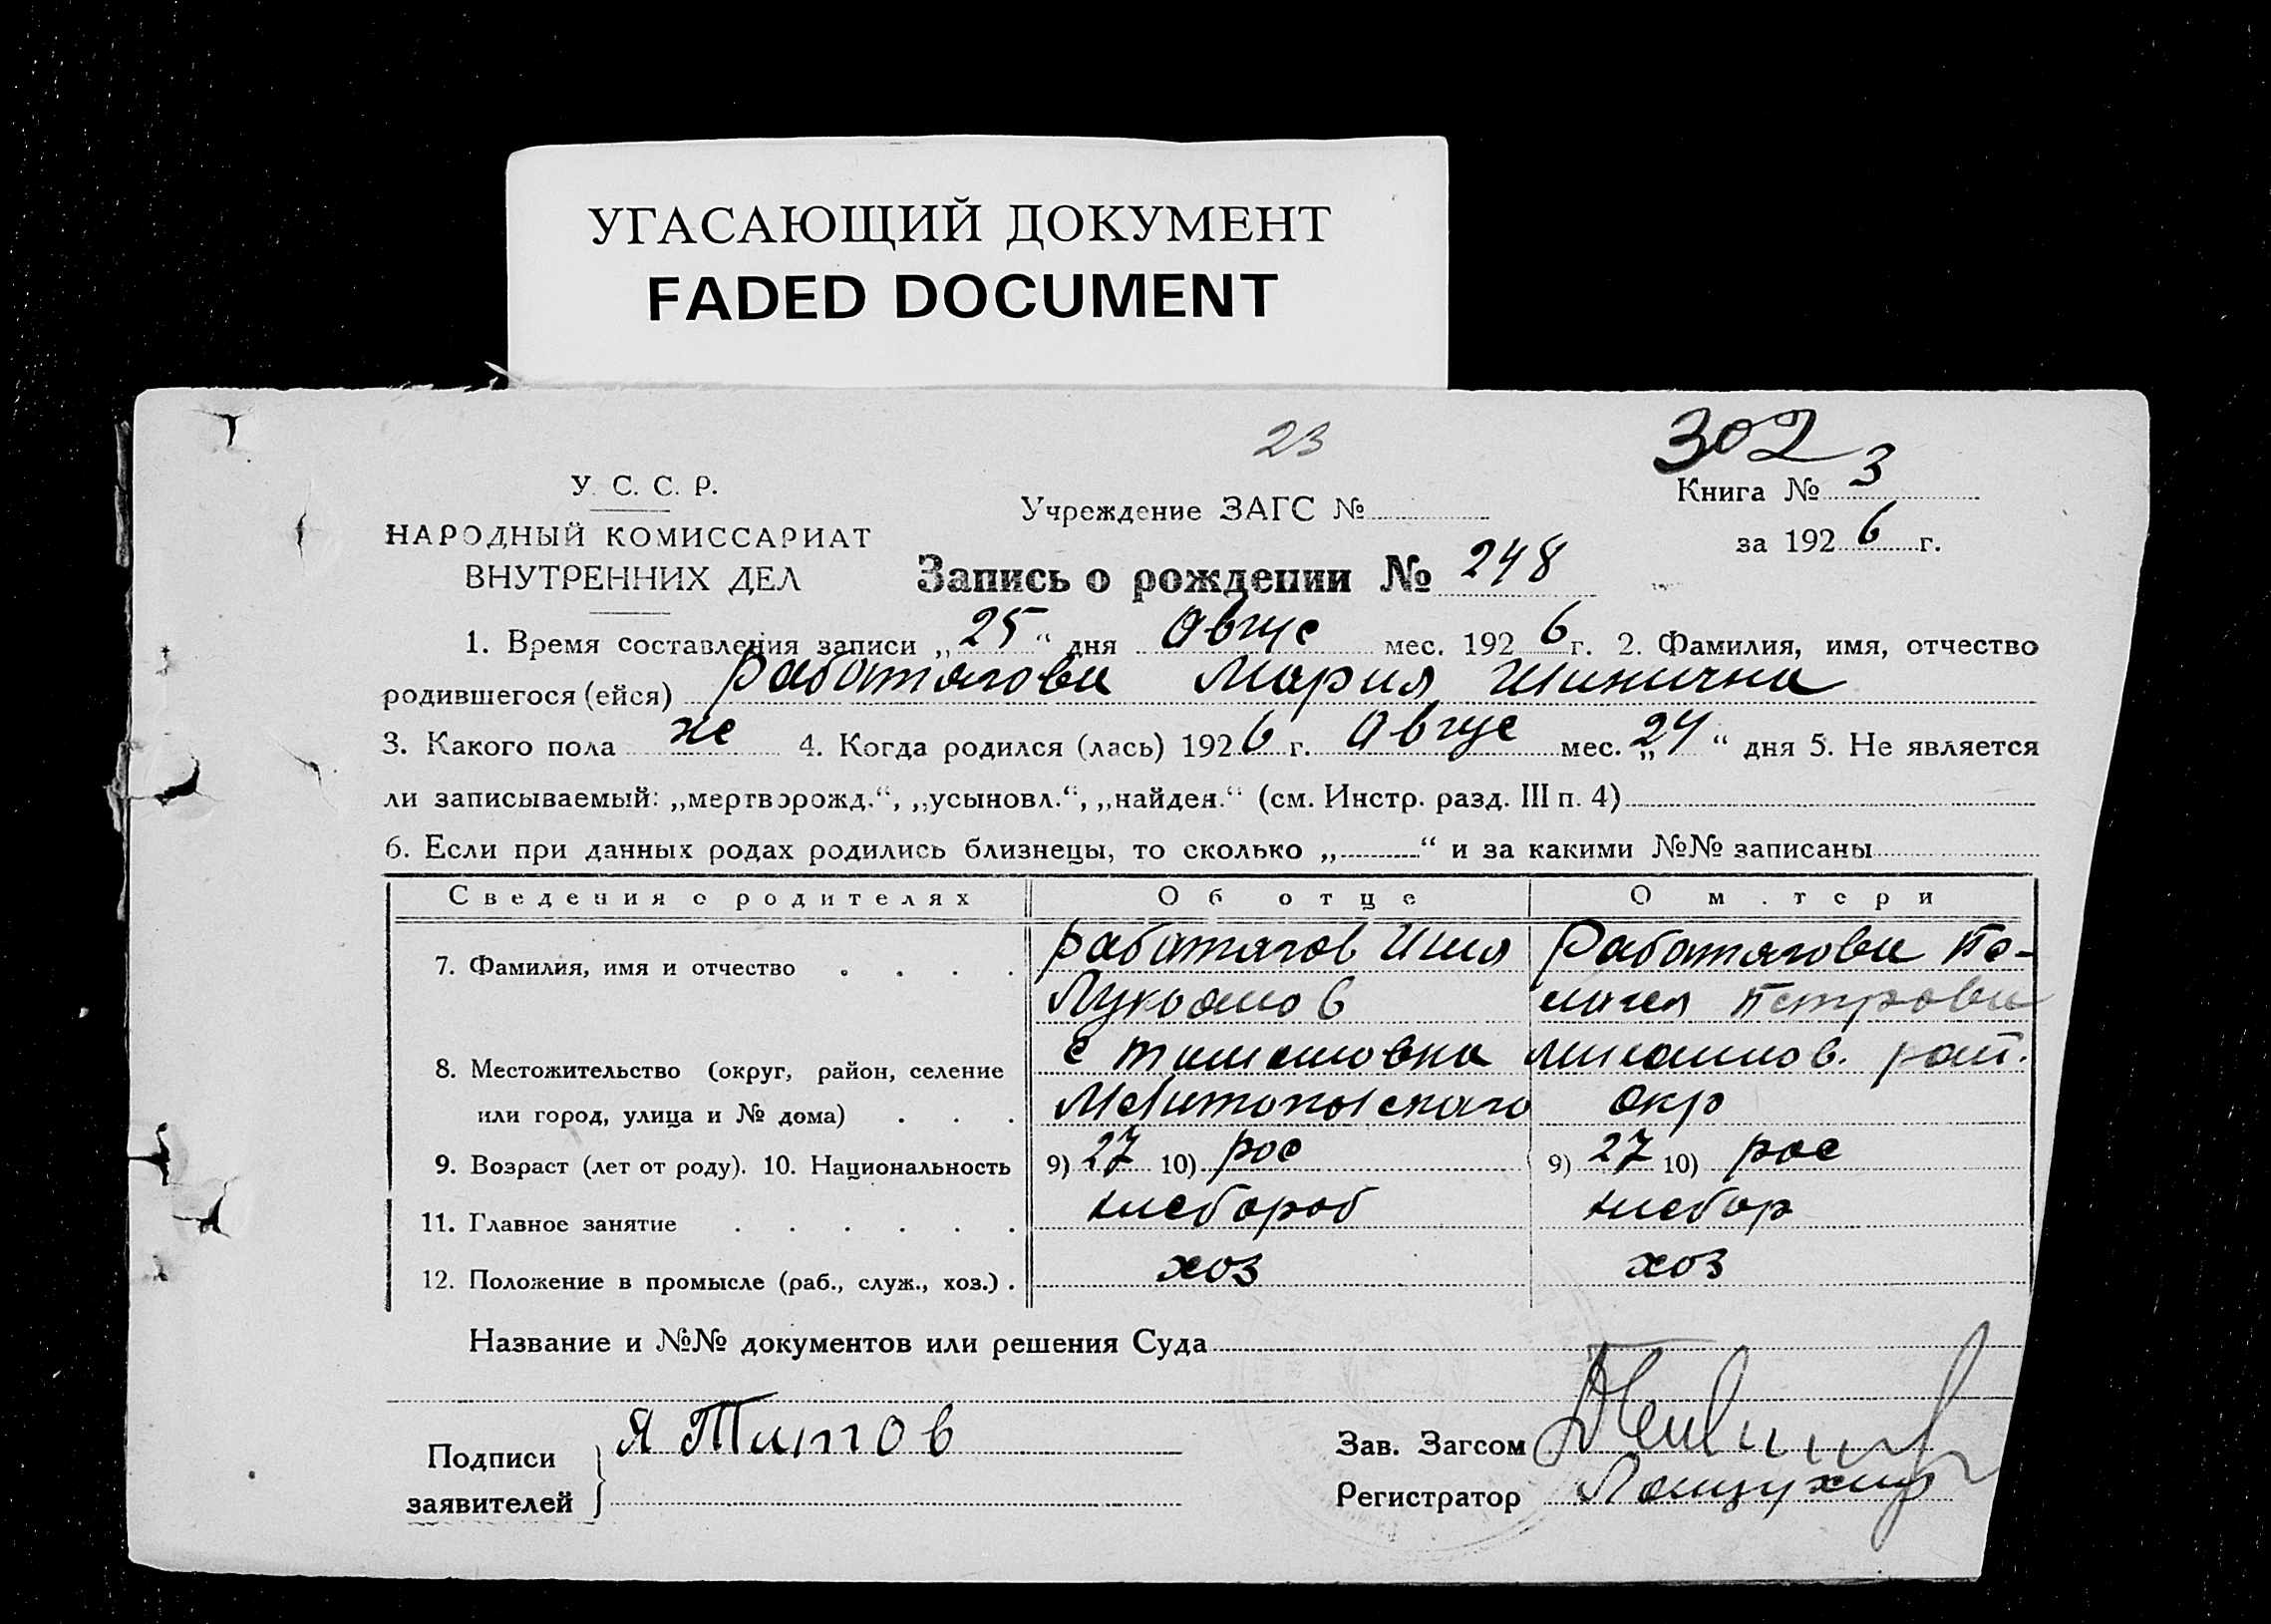 УГАСАЮЩИЙ ДОКУМЕНТ
FADED DOCUMENT
23
302
У. С. С. Р.
НАРОДНЫЙ КОМИССАРИАТ
ВНУТРЕННИХ ДЕЛ
Учреждение ЗАГС №
Книга № 3
за 1926 г.
Запись о рождении № 248
1. Время составления записи „25“ дня Авгус мес. 1926 г. 2. Фамилия, имя, отчество
родившегося (ейся) Работягова Мария
3. Какого пола же 4. Когда родился (лась) 1926 г. Авгус мес. „24“ дня 5. Не является
ли записываемый: „мертворожд.“, „усыновл.“, „найден.“ (см. Инстр. разд. III п. 4)
6. Если при данных родах родились близнецы, то сколько „ “ и за какими №№ записаны
Сведения о родителях Об отце О м.тери
7. Фамилия, имя и отчество Работягов Илия Работягова Пе-
Лукьянов лагея Петровна
8. Местожительство (округ, район, селение с Тимошовка рай.
или город, улица и № дома) Мелитопольского окр
9. Возраст (лет от роду). 10. Национальность 9) 27 10) рос 9) 27 10) рос
11. Главное занятие хлебороб хлебор
12. Положение в промысле (раб., служ., хоз.) хоз хоз
Название и №№ документов или решения Суда
Подписи заявителей Я Титов
Зав. Загсом
Регистратор